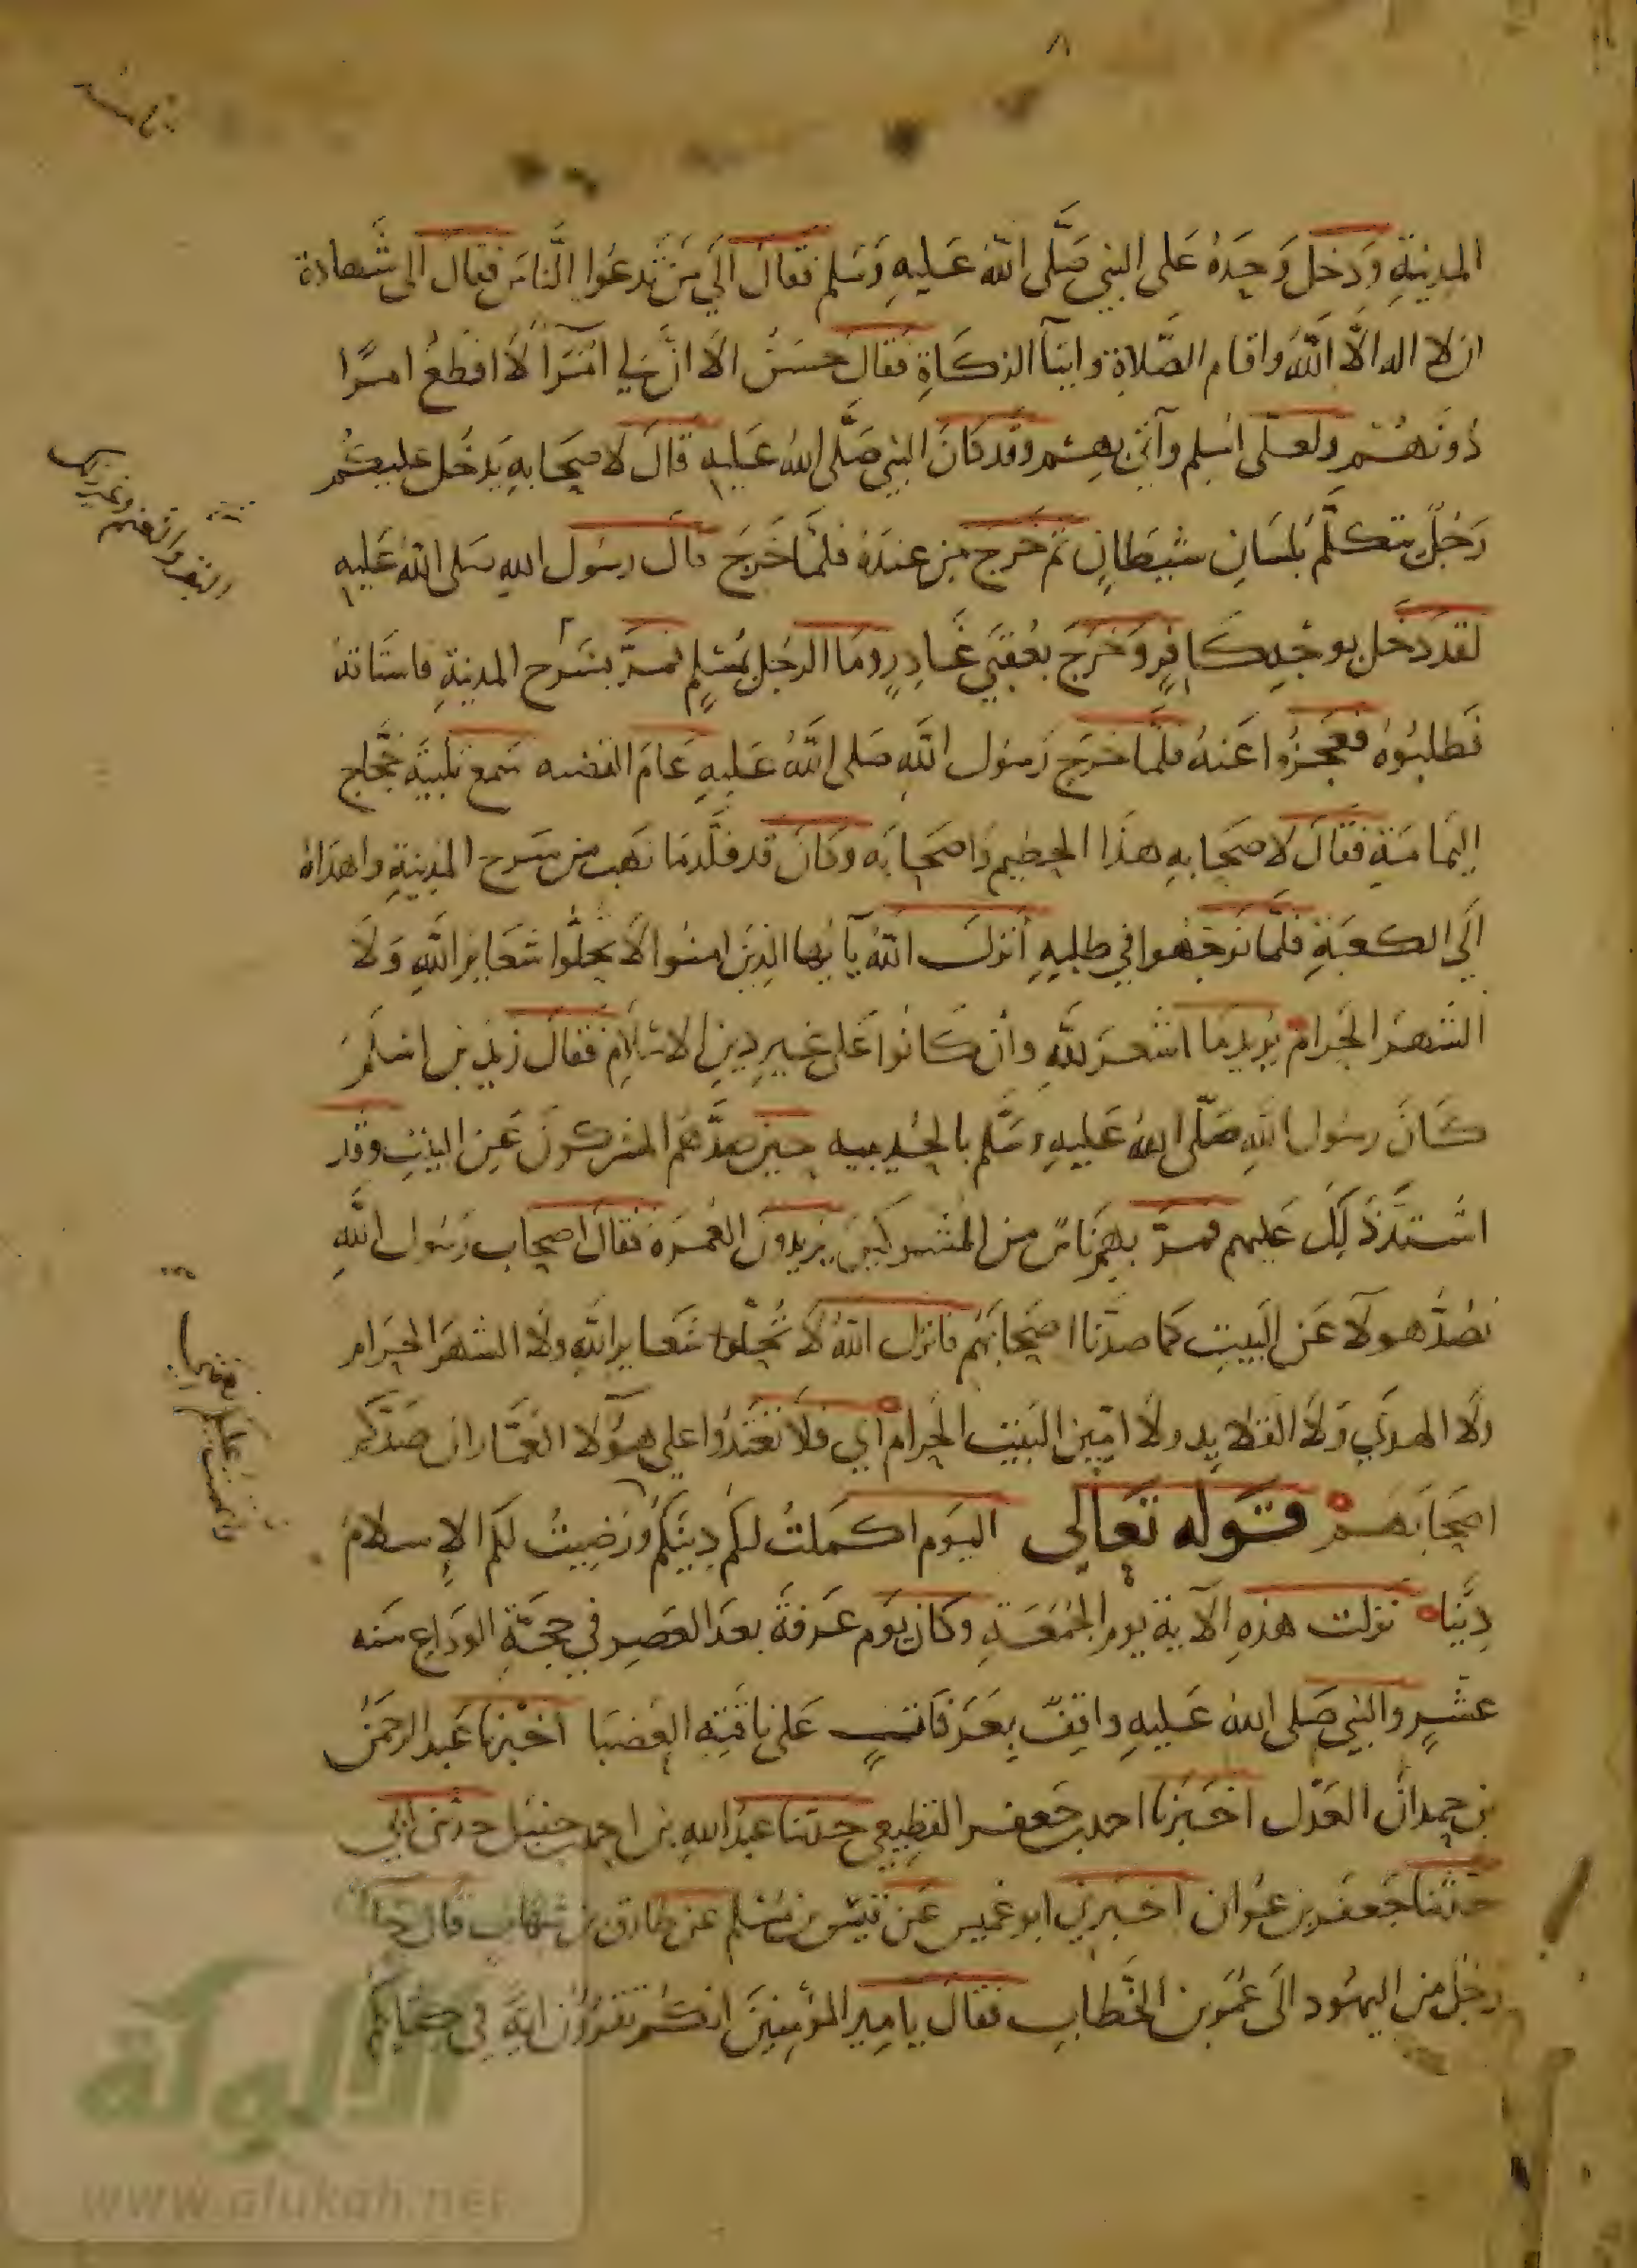 ٨
ثامنه
المدينةِ وَدخل وَحدَهُ عَلى النبي صَلَّى اللهُ عَليهِ وَسَلم فقالَ الَي مَن تدعوا النَّاسَ فقالَ الى شَهادة
ان لا اله الَّا اللَّهُ واقام الصَّلاةِ وايتآ الزكَاةِ فقالَ حسَنٌ الَا انَّ لي امَرَآ لَا اقطعُ امرًا
دُونهُمْ ولعَلّى اُسلِم وآتي بهِم وقدكانَ النبي صَلَّى اللهُ عَليهِ قالَ لاصحَابهِ يَدخُل عليكُم
رَجُلٌ يتكلَّمُ بلسَانِ شيطَانٍ ثم خَرج مِن عندَهُ فلمَّا خَرَجَ قالَ رسُول اللهِ صَلى اللهُ عَليهِ
لقد دَخل بوجْهِ كَافِرٍ وَخَرَجَ بعُقبَي غَادِرٍ ومَا الرجُل بمُسْلِمٍ فمرَّ بسَرْح المدينةِ فاستَاقهُ
فطَلبُوهُ فعَجزُوا عَنهُ فلمَّا خرَج رَسُول اللَّهِ صَلى اللَّهُ عَليهِ عَامَ القضيه سَمع تلبيَة حُجَّاج
اليَمامَةِ فقالَ لاصحَابهِ هذَا الحطيم وَاصحابَه وكانَ قد قلَّد مَا نهَب من سَرح المدينةِ واهدَاهُ
الَي الكعبَةِ فلمَّا توجَّهُوا في طلبِهِ أنزلَ اللهُ يَآ ايُّها الذينَ امنُوا لَا تحلُّوا شعَايرَ اللَّهِ وَلَا
الشهرَ الحَرامَ يُريد مَا اشعرَ للَّهِ وان كانُوا عَلى غيرِ دينِ الاسْلامِ فقالَ زيدُ بن اسلَمَ
كانَ رسُول اللهِ صَلّى اللهُ عَليهِ وسَلَّم بالحُديبيه حين صدَّهُم المشركونَ عَنِ البيتِ وقد
اشتدَّ ذَلِكَ عَليهم فمرَّ بهم نَاسٌ من المُشركينَ يُريدُونَ العُمرَةَ فقالَ اصحاب رَسُول اللَّهِ
نصُدُّ هولآ عَن البَيتِ كما صدَّنا اصْحَابَهُم فانزل اللهُ لَا تُحِلّوا شعَايرَ اللَّهِ ولا الشهرَ الحرَام
ولَا الهدَي وَلَا القلايد ولَا امّينَ البَيتَ الحَرام اي فلَا تعْتَدُوا على هؤلا العُمَّار ان صَدَّكم
اصحَابَهُم قَوله تَعَالى اليَوم اكمَلتُ لكُم دِينَكُم وَرَضِيتُ لكُم الإسلامَ
دِينًا نزلت هذهِ الآية يوم الجُمُعَةِ وكان يَوم عَرفةَ بعدَ العَصِر في حجَّةِ الوَدَاع سَنه
عشْرٍ والنبي صَلى اللهُ عَليهِ واقِفٌ بِعَرَفَاتٍ عَلى نَاقتِه العَضبَا اخْبرنا عَبد الرحمَن
بن حمدان العَدْل اخبَرنا احمد بن جَعفر القطِيعِي حدثنا عبدُ اللهِ بن احمد بن حنبل حدثنى ابي
حَدثنا جَعفر بن عَوان اخبرني ابو عميس عَن قيس بن مُسْلِم عن طارق بن شهَابٍ قال جا
رجُلٌ من اليهُود الَى عُمَر بن الخَطابِ فقالَ يا امير المؤمنينَ انكُم تقرؤُن ايَة في كتابكُم
الألوكة
www.alukah.net